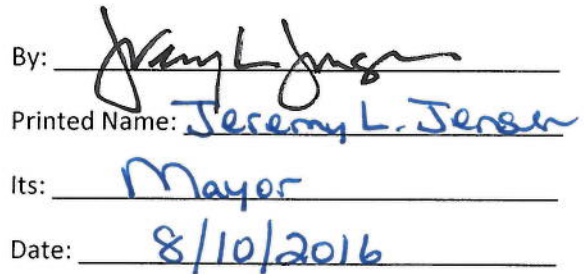 By: Jeremy L Jensen
Printed Name: Jeremy L. Jensen
Its: Mayor
Date: 8/10/2016